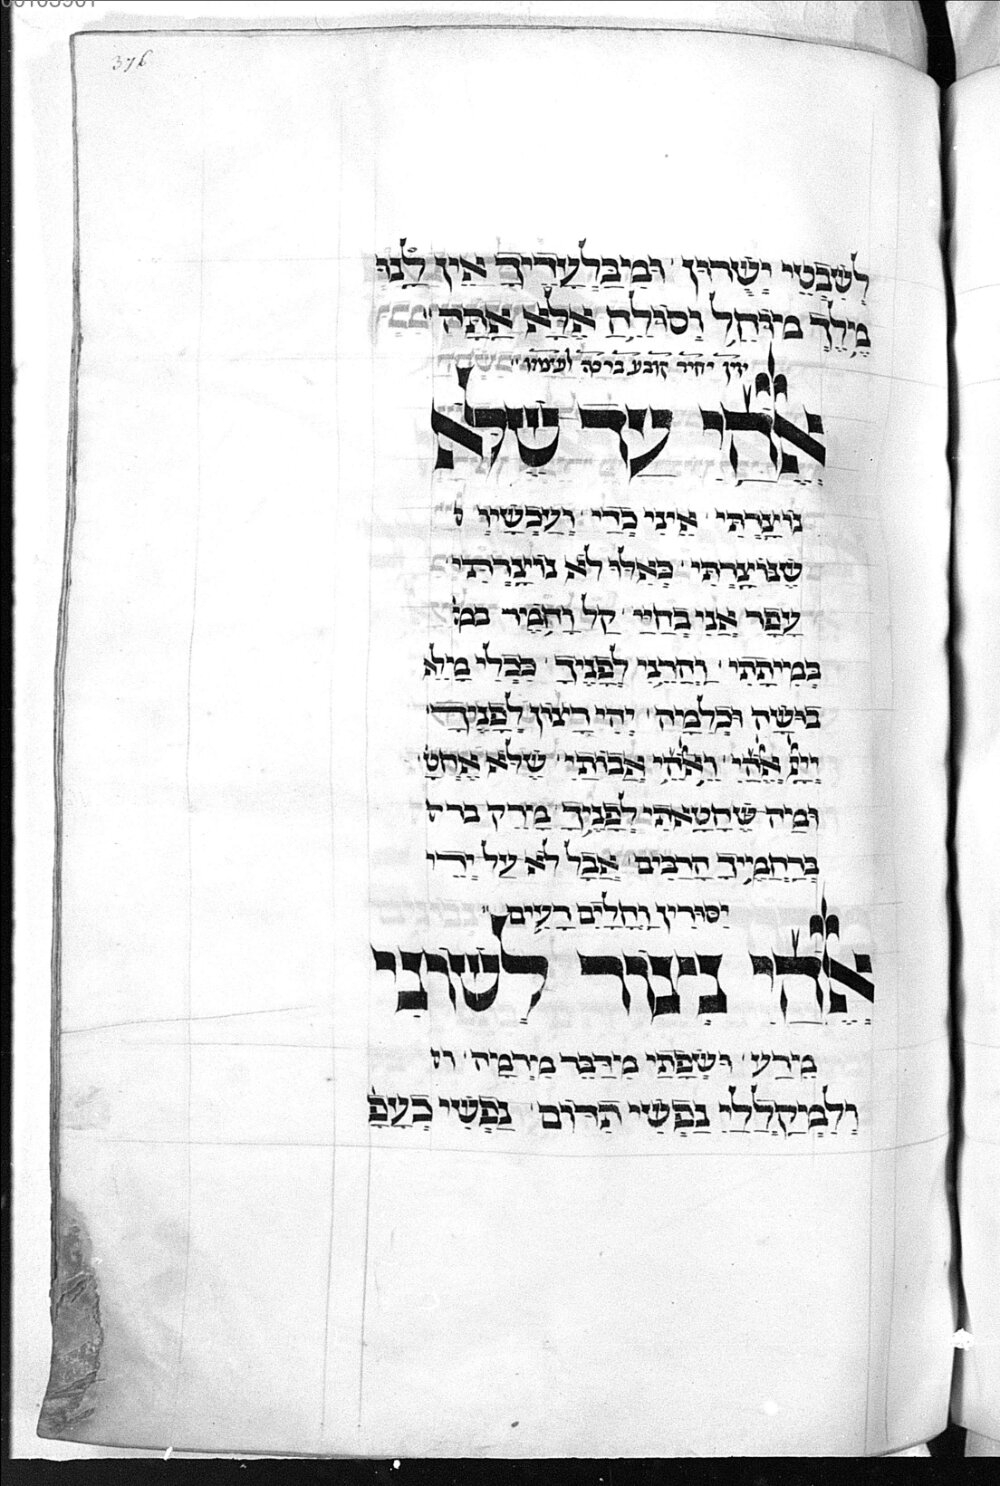 376
לְשִׁבְטֵי יְשֻׁרוּן וּמִבַּלְעָדֶיךָ אֵין לָנוּ
מֶלֶךְ מוֹחֵל וְסוֹלֵחַ אֶלָּא אַתָּה
יחיד קובע ברכה לעצמו
אֱלֹהַי עַד שֶׁלֹּא
נוֹצַרְתִּי אֵינִי כְדַי וְעַכְשָׁיו
שֶׁנּוֹצַרְתִּי כְּאִלּוּ לֹא נוֹצַרְתִּי
עָפָר אֲנִי בְחַיַּי קַל וָחֹמֶר במ
בְּמִיתָתִי וַהֲרֵנִי לְפָנֶיךָ כִּכְלִי מָלֵא
בוּשָׁה וּכְלִמָּה יְהִי רָצוֹן לְפָנֶיךָ
אֱלֹהַי וֵאלֹהֵי אֲבוֹתַי שֶׁלֹּא אֶחֱטָ
וּמַה שֶּׁחָטָאתִי לְפָנֶיךָ מָרֵק ברח
בְּרַחֲמֶיךָ הָרַבִּים אֲבָל לֹא עַל יְדֵי
יִסּוּרִין וָחֳלָיִם רָעִים
אֱלֹהַי נְצוֹר לְשׁוֹנִי
מֵרַע וּשְׂפָתַי מִדַּבֵּר מִרְמָה ול
וְלִמְקַלְלַי נַפְשִׁי תִדּוֹם נַפְשִׁי כְּעָפָ